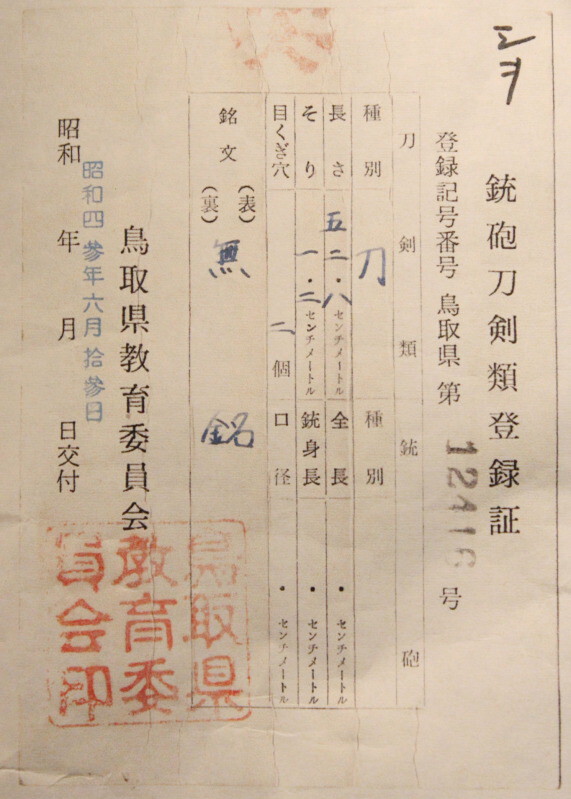 銃砲刀剣類登録証
登録記号番号 鳥取県 第 12416 号
刀剣類 銃砲
種別 刀 種別
長さ 五二・八センチメートル 全長 ・センチメートル
そり 一・二センチメートル 銃身長 ・センチメートル
目くぎ穴 二個 口径 ・センチメートル
銘文 (表) 無銘
(裏)
鳥取県教育委員会
昭和四參年六月拾參日
昭和 年 月 日交付
鳥取県
教育委
員会印